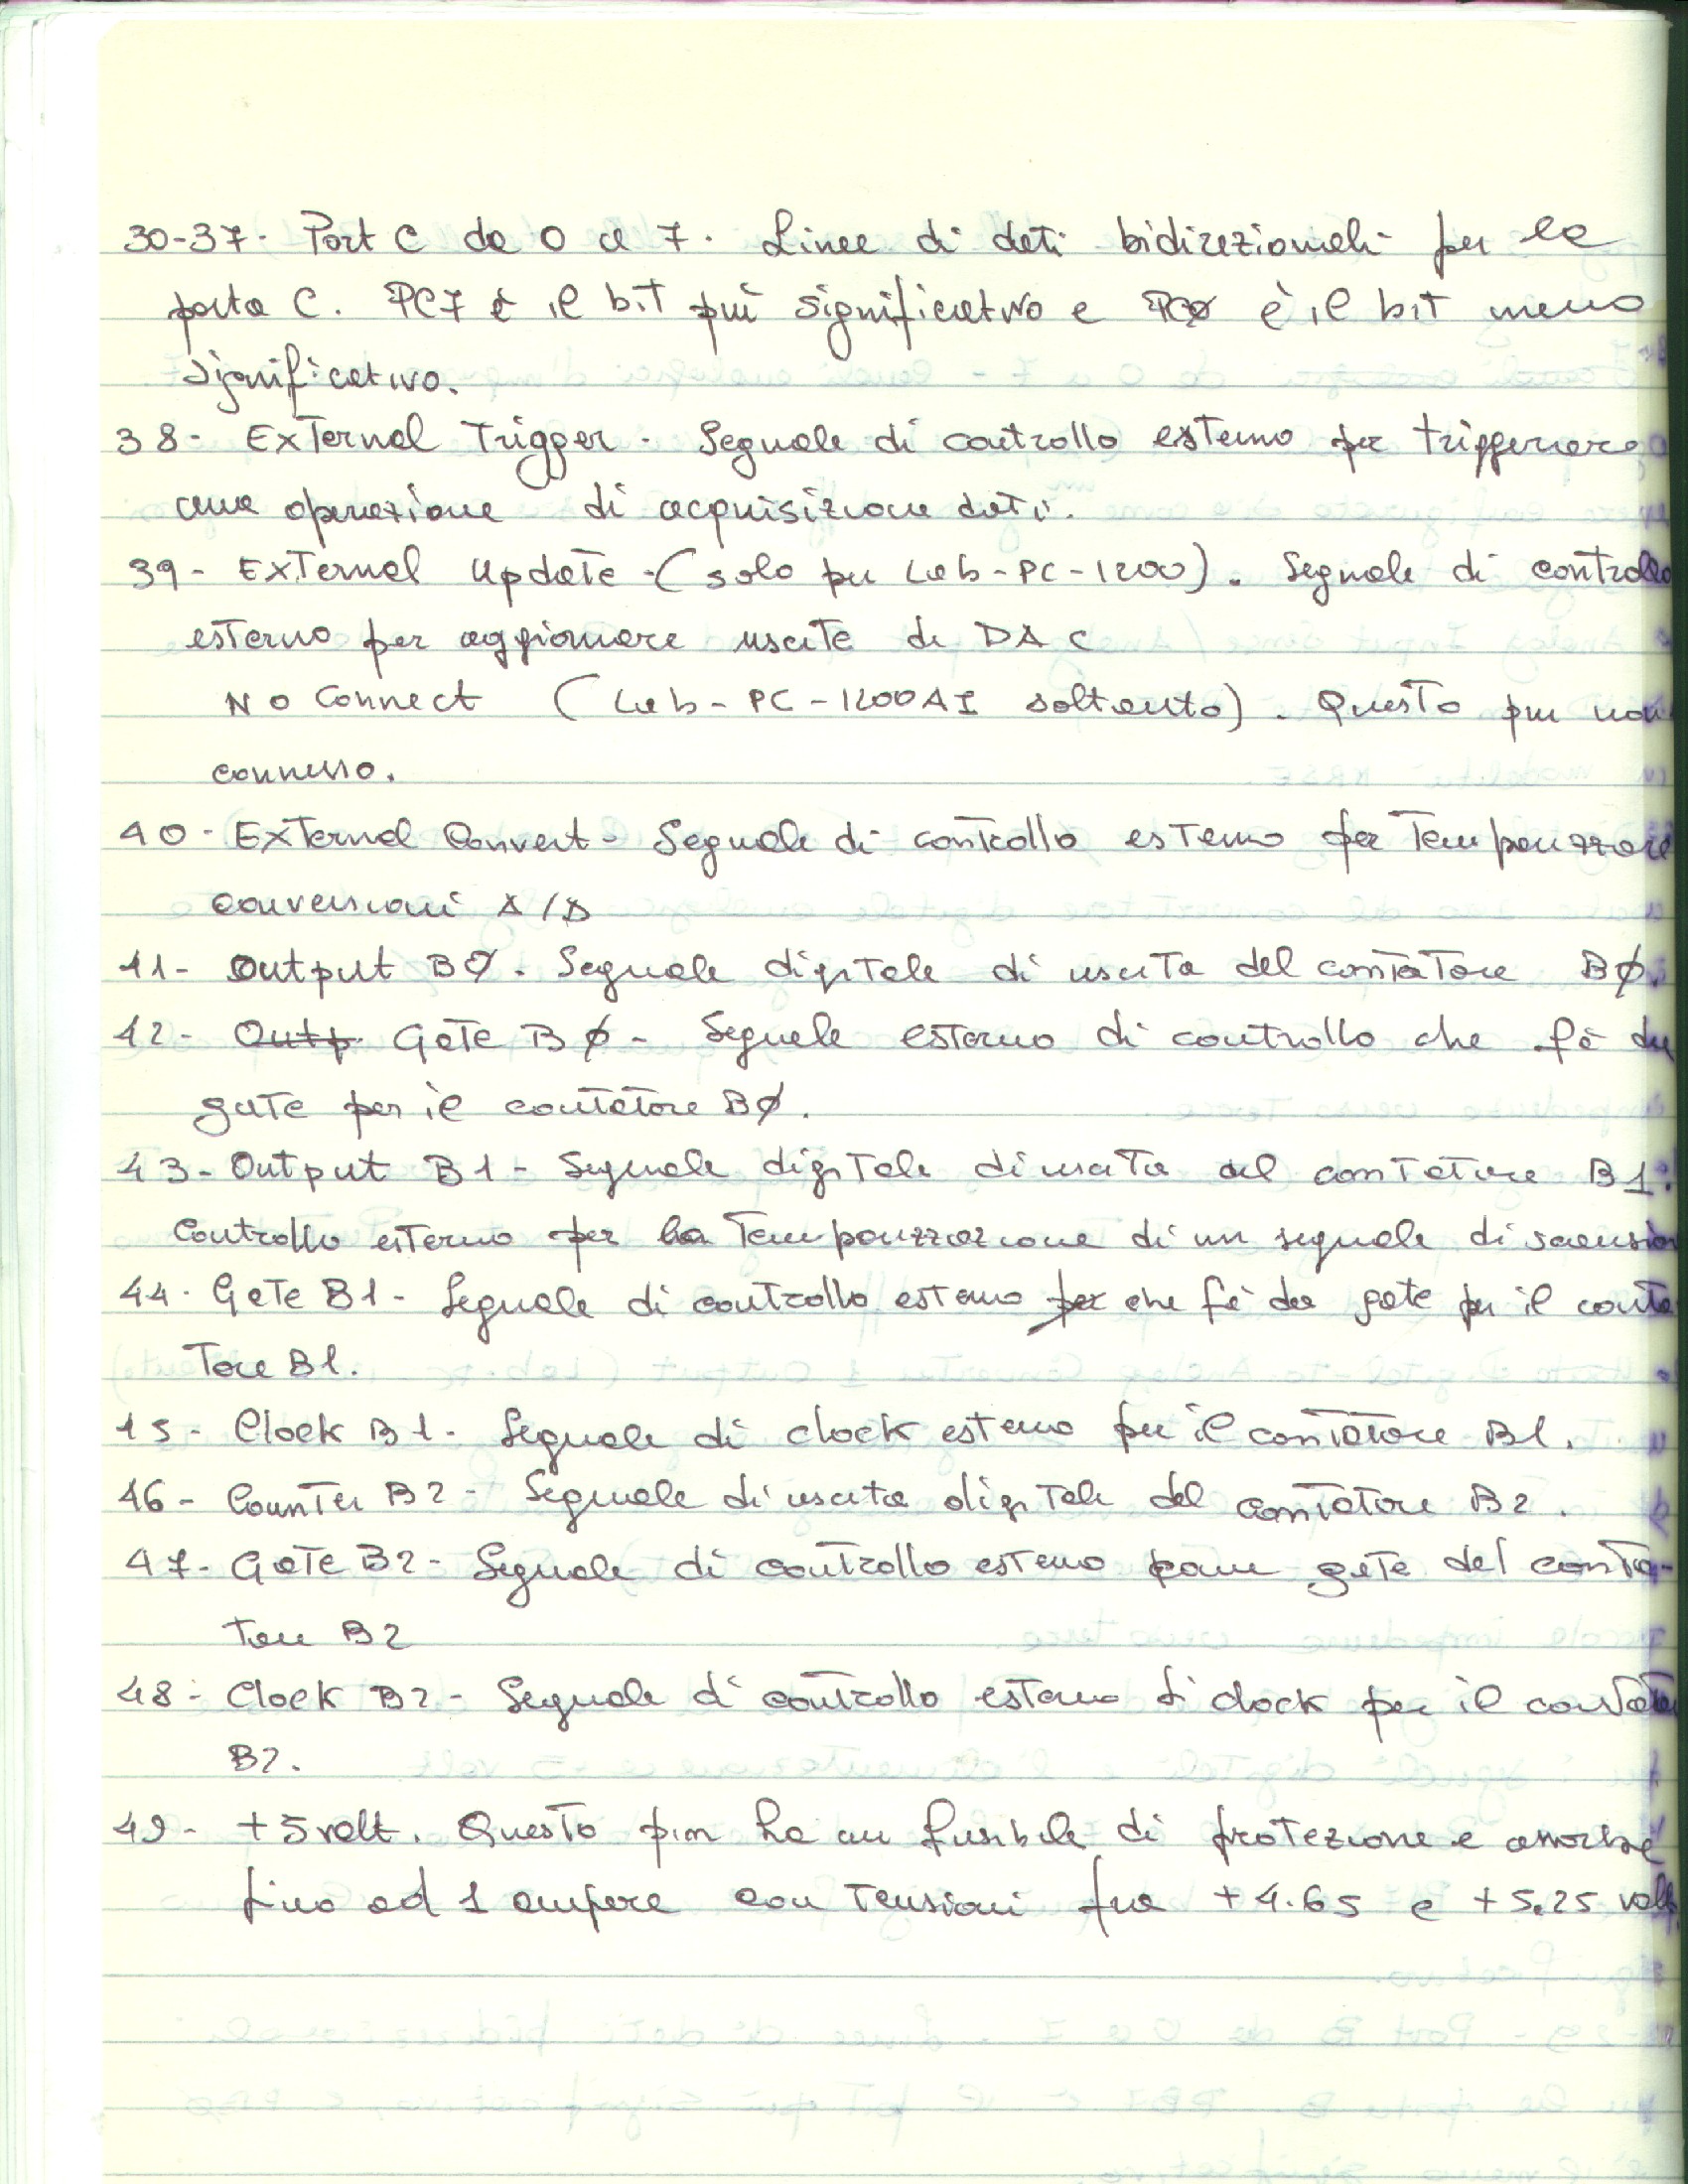 30-37. Port C da 0 a 7. Linee di dati bidirezionali per la
porta C. PC7 è il bit più significativo e PCØ è il bit meno
significativo.
38- External Trigger - Segnale di controllo esterno per triggerare
una operazione di acquisizione dati.
39- External Update - (solo per Lab-PC-1200). Segnale di controllo
esterno per aggiornare uscite di DAC
No Connect (Lab-PC-1200AI soltanto). Questo pin non
connesso.
40- External Convert - Segnale di controllo esterno per Temporizzare
conversioni A/D
41- Output BØ. Segnale digitale di uscita del contatore BØ.
42- Outp Gate BØ - Segnale esterno di controllo che fà da
gate per il contatore BØ.
43- Output B1 - Segnale digitale di uscita del contatore B1.
Controllo esterno per la Temporizzazione di un segnale di scansion
44. Gate B1 - Segnale di controllo esterno per che fà da gate per il conta
Tore B1.
45- Clock B1 - Segnale di clock esterno per il contatore B1.
46- Counter B2 - Segnale di uscita digitale del contatore B2.
47- Gate B2 - Segnale di controllo esterno come gate del conta-
Tore B2
48- Clock B2 - Segnale di controllo esterno di clock per il contatore
B2.
49- +5 volt. Questo pin ha un fusibile di protezione e assorbe
fino ad 1 ampere con Tensioni fra +4.65 e +5.25 volt.